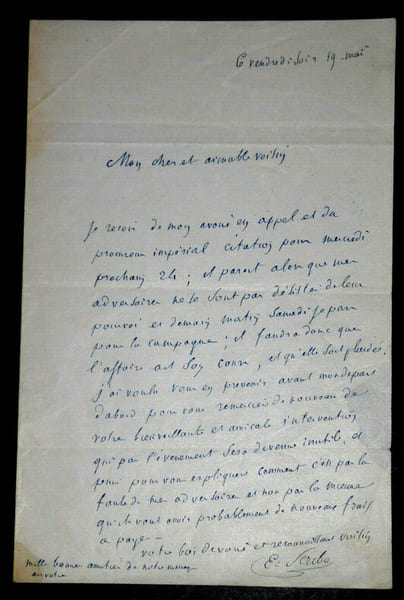 ce vendredi soir 19 mai
Mon cher et aimable voisin
Je reçois de mon avoué en appel et du
procureur impérial citation pour mercredi
prochain 24 ; il parait alors que mes
adversaires ne se sont pas désistés de leur
pourvoi et demain matin samedi je pars
pour la campagne ; il faudra donc que
l'affaire ait son cours, et qu'elle soit plaidée.
J'ai voulu vous en prévenir avant mon départ
d'abord pour vous remercier de nouveau de
votre bienveillante et amicale intervention
qui par l'évènement sera devenue inutile, et
puis pour vous expliquer comment c'est par la
faute de mes adversaires et non par la mienne
qu'ils vont avoir probablement de nouveaux frais
à payer -
votre bien dévoué et reconnaissant voisin
E. Scribe
mille bonnes amitiés de notre ménage
au vôtre